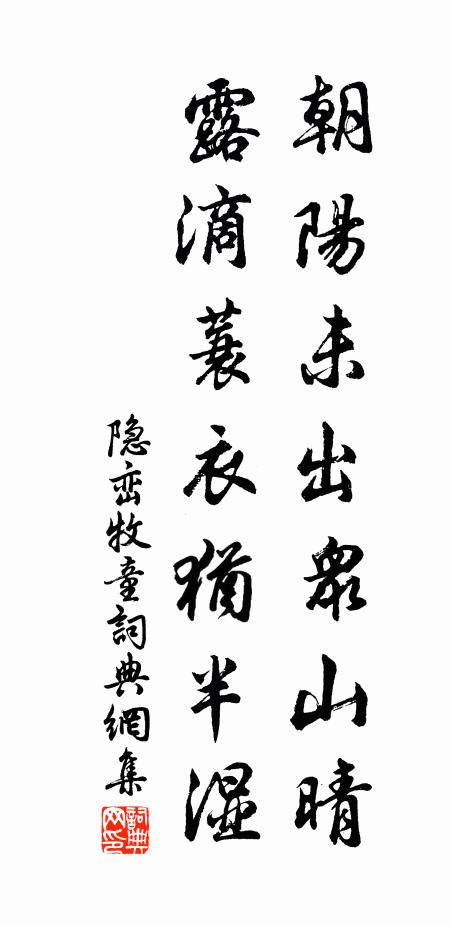 朝陽未出衆山晴
露滴蓑衣猶半湿
隐巒牧童詞典網集
詞典网印